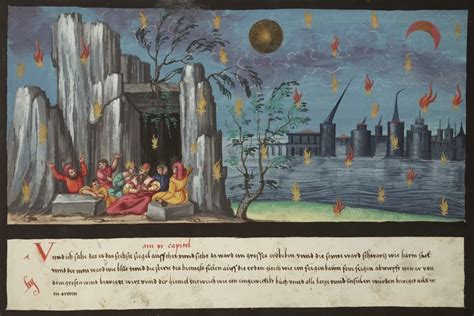 am vi capitel
Vnnd ich sahe das es das sechste sigel auffthet vnnd sihe da ward ein grosses erdbiben vnnd die sonne ward schwartz wie harin sack
vnnd der mon ward wie blut vnnd die stern des himels fielen auff die erden gleich wie ein feigen baum sein feigen abwurfft wen er von
dem grossen wind bewegt wirt vnnd der himel entweich wie ein eingewickelt buch vnnd alle berge vnnd insulen wurden bewegt aus
iren orttern